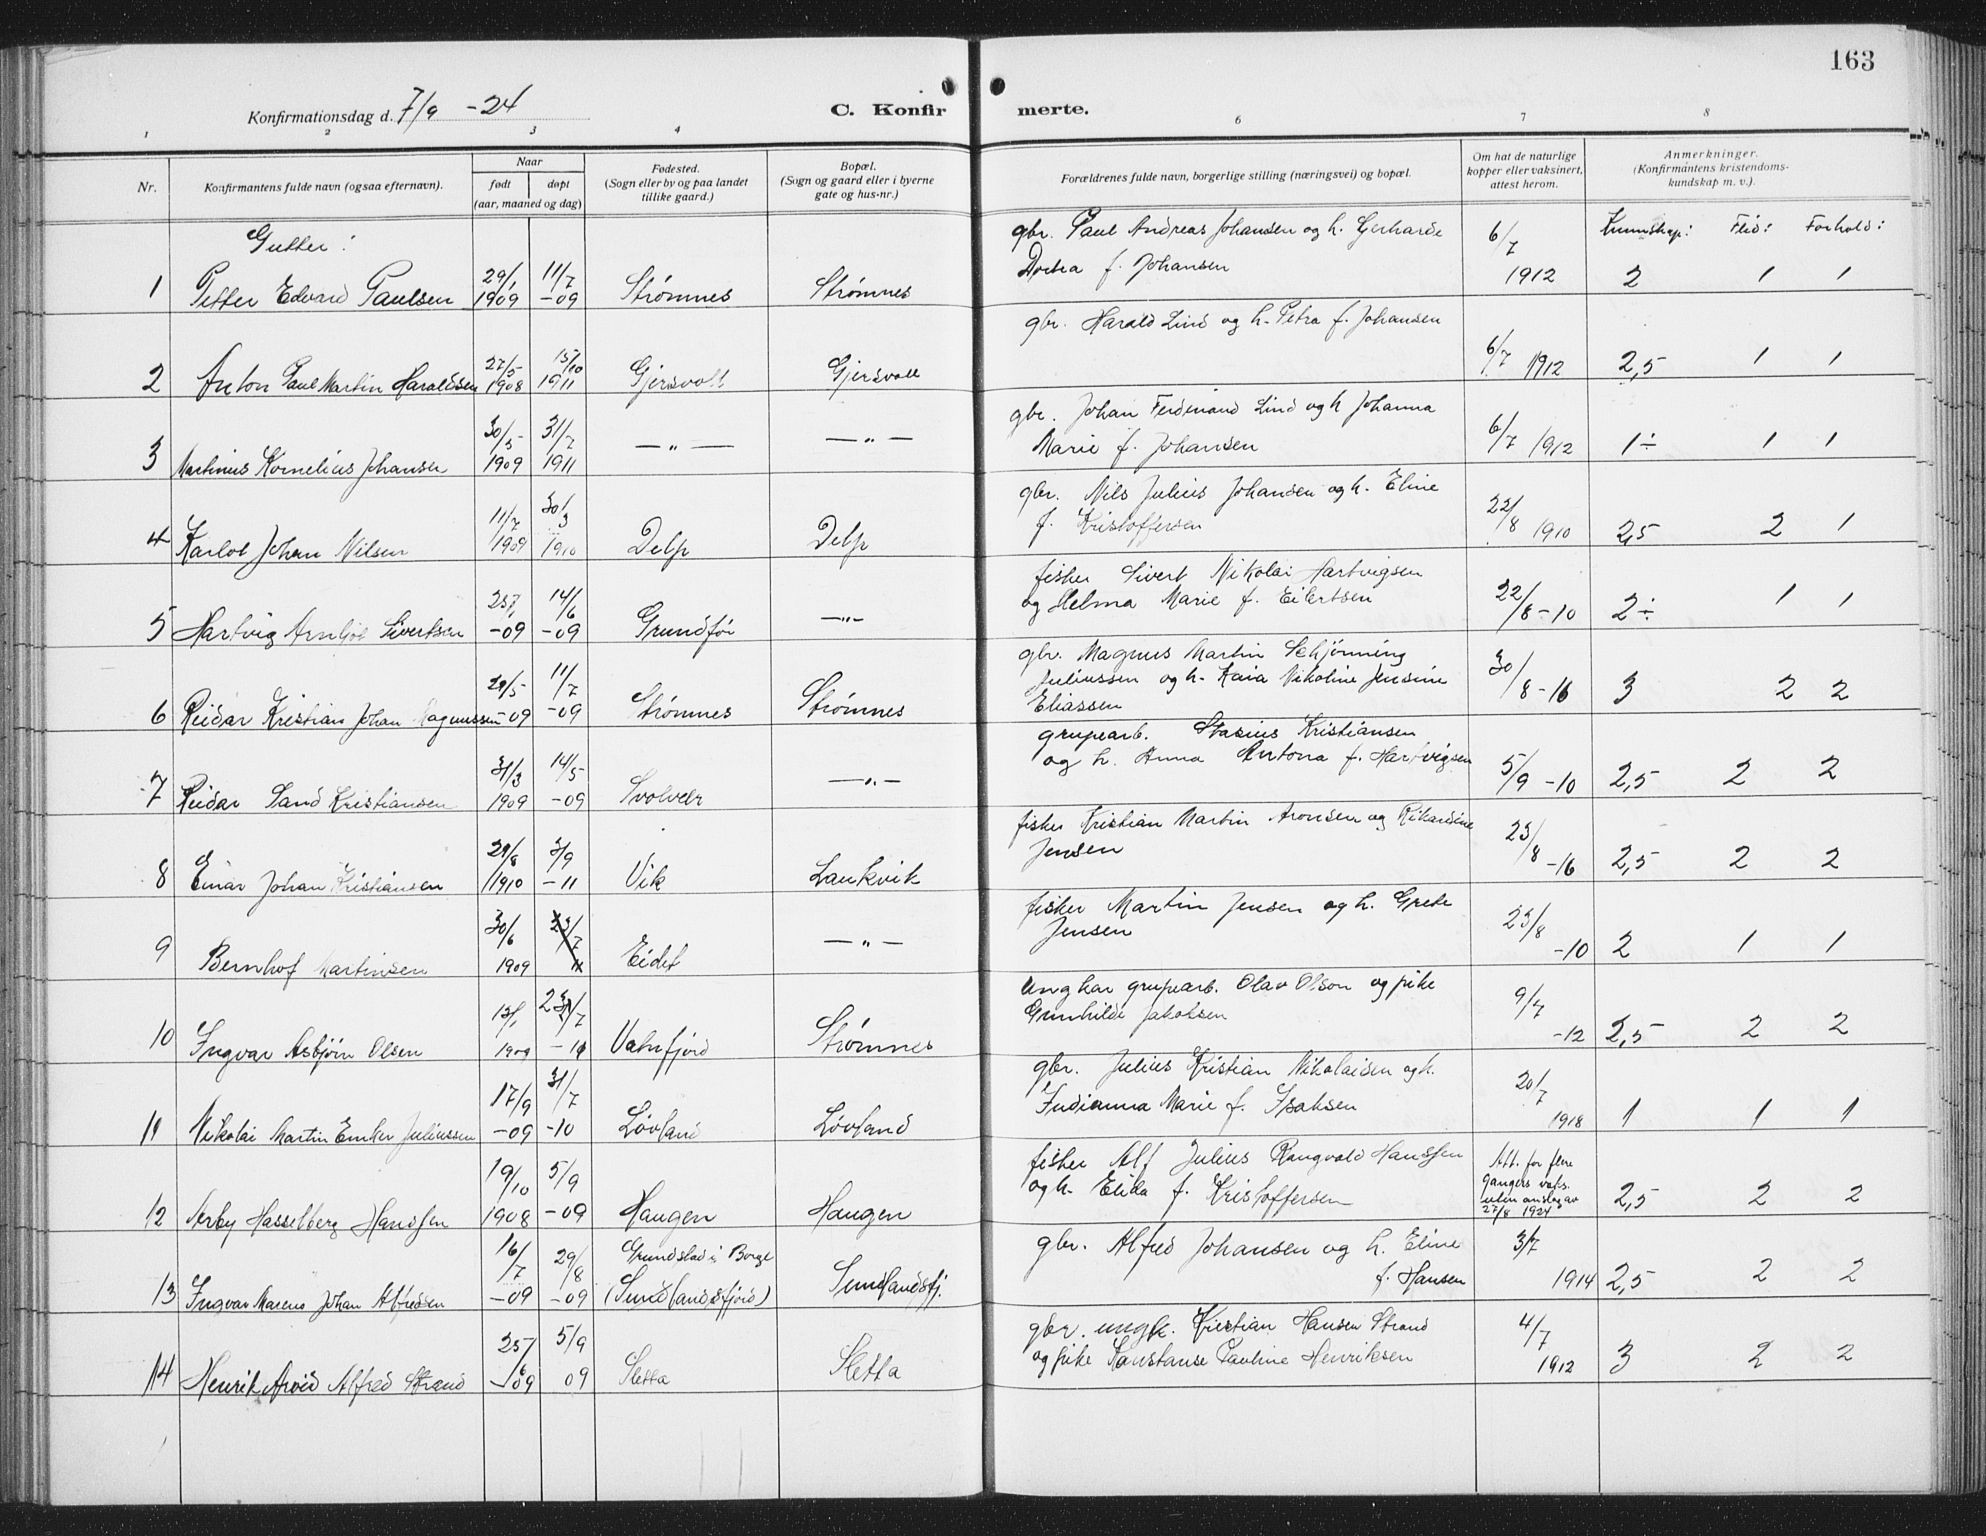 163
Konfirmationsdag d. 7/9 -24
C. Konfirmerte.
1 2 3 4 6 7 8
Nr.
Konfirmantens fulde navn (ogsaa efternavn).
Naar
født døpt
(aar, maaned og dag)
Fødested.
(Sogn eller by og paa landet
tillike gaard.)
Bopæl.
(Sogn og gaard eller i byerne
gate og hus-nr.)
Forældrenes fulde navn, borgerlige stilling (næringsvei) og bopæl.
Om hat de naturlige
kopper eller vaksinert,
attest herom.
Anmerkninger.
(Konfirmantens kristendoms-
kundskap m. v.).
Gutter:
Kunnskap: Flid: Forhold:
gbr. Paul Andreas Johansen og h. Gerharde
Dortea f. Johansen
1 Petter Edvard Paulsen 29/1 1909 11/7 -09 Strømnes Strømnes 6/7 1912 2 1 1
gbr. Harald Lind og h. Petra f. Johansen
2 Anton Paul Martin Haraldsen 27/5 1908 15/10 1911 Gjersvoll Gjersvoll 6/7 1912 2,5 1 1
gbr. Johan Ferdinand Lind og h Johanna
Marie f. Johansen
3 Martinus Kornelius Johansen 30/5 1909 31/7 1911 — " — — " — 6/7 1912 1÷ 1 1
gbr. Nils Julius Johansen og h. Eline
f. Kristoffersen
4 Karlot Johan Nilsen 11/7 1909 30/3 1910 Delp Delp 22/8 1910 2,5 2 1
fisker Sivert Nikolai Hartvigsen
og Helma Marie f. Eilertsen
5 Hartvig Arnljot Sivertsen -09 14/6 -09 Grundfør — " — 22/8 -10 2÷ 1 1
gbr. Magnus Martin Schjønning
Juliussen og h. Kaia Nikoline Jensine
Eliassen
6 Reidar Kristian Johan Magnussen 29/5 -09 11/7 -09 Strømnes Strømnes 30/8 -16 3 2 2
grupearb. Stasius Kristiansen
og h. Anna Antona f. Hartvigsen
7 Reidar Sand Kristiansen 31/3 1909 14/5 -09 Svolvær — " — 5/9 -10 2,5 2 2
fisker Kristian Martin Aronsen og Rikardine
Jensen
8 Einar Johan Kristiansen 29/8 1910 3/9 -11 Vik Laukvik 23/8 -16 2,5 2 2
fisker Martin Jensen og h. Grete
Jensen
9 Bernhof Martinsen 30/6 1909 23/7 11 Eidet — " — 23/8 -10 2 1 1
Ungkar grupearb. Olav Olson og pike
Gunhilde Jakobsen
10 Ingvar Asbjørn Olsen 13/1 1909 Vatnfjord Strømnes 9/7 -12 2,5 2 2
gbr. Julius Kristian Nikolaisen og h.
Indianna Marie f. Isaksen
11 Nikolai Martin Emker Juliussen 17/9 -09 31/7 -10 Løvland Løvland 20/7 1918 1 1 1
fisker Alf Julius Rangvald Hanssen
og h. Elida f. Kristoffersen
12 Arby Hasselberg Hanssen 19/10 1908 5/9 -09 Haugen Haugen
Att. for flere
gangers vaks.
uten anslag av
27/8 1924 2,5 2 2
gbr. Alfred Johansen og h. Eline
f. Hansen
13 Ingvar Marens Johan Alfredsen 16/7 -09 29/8 -09 Grundstad i Borge
(Sundlandsfjord) Sundlandsfj. 3/7 1914 2,5 2 2
gbr. ungk. Kristian Hansen Strand
og pike Konstanse Pauline Henriksen
14 Henrik Arvid Alfred Strand 25/6 -09 5/9 09 Sletta Sletta 4/7 1912 3 2 2